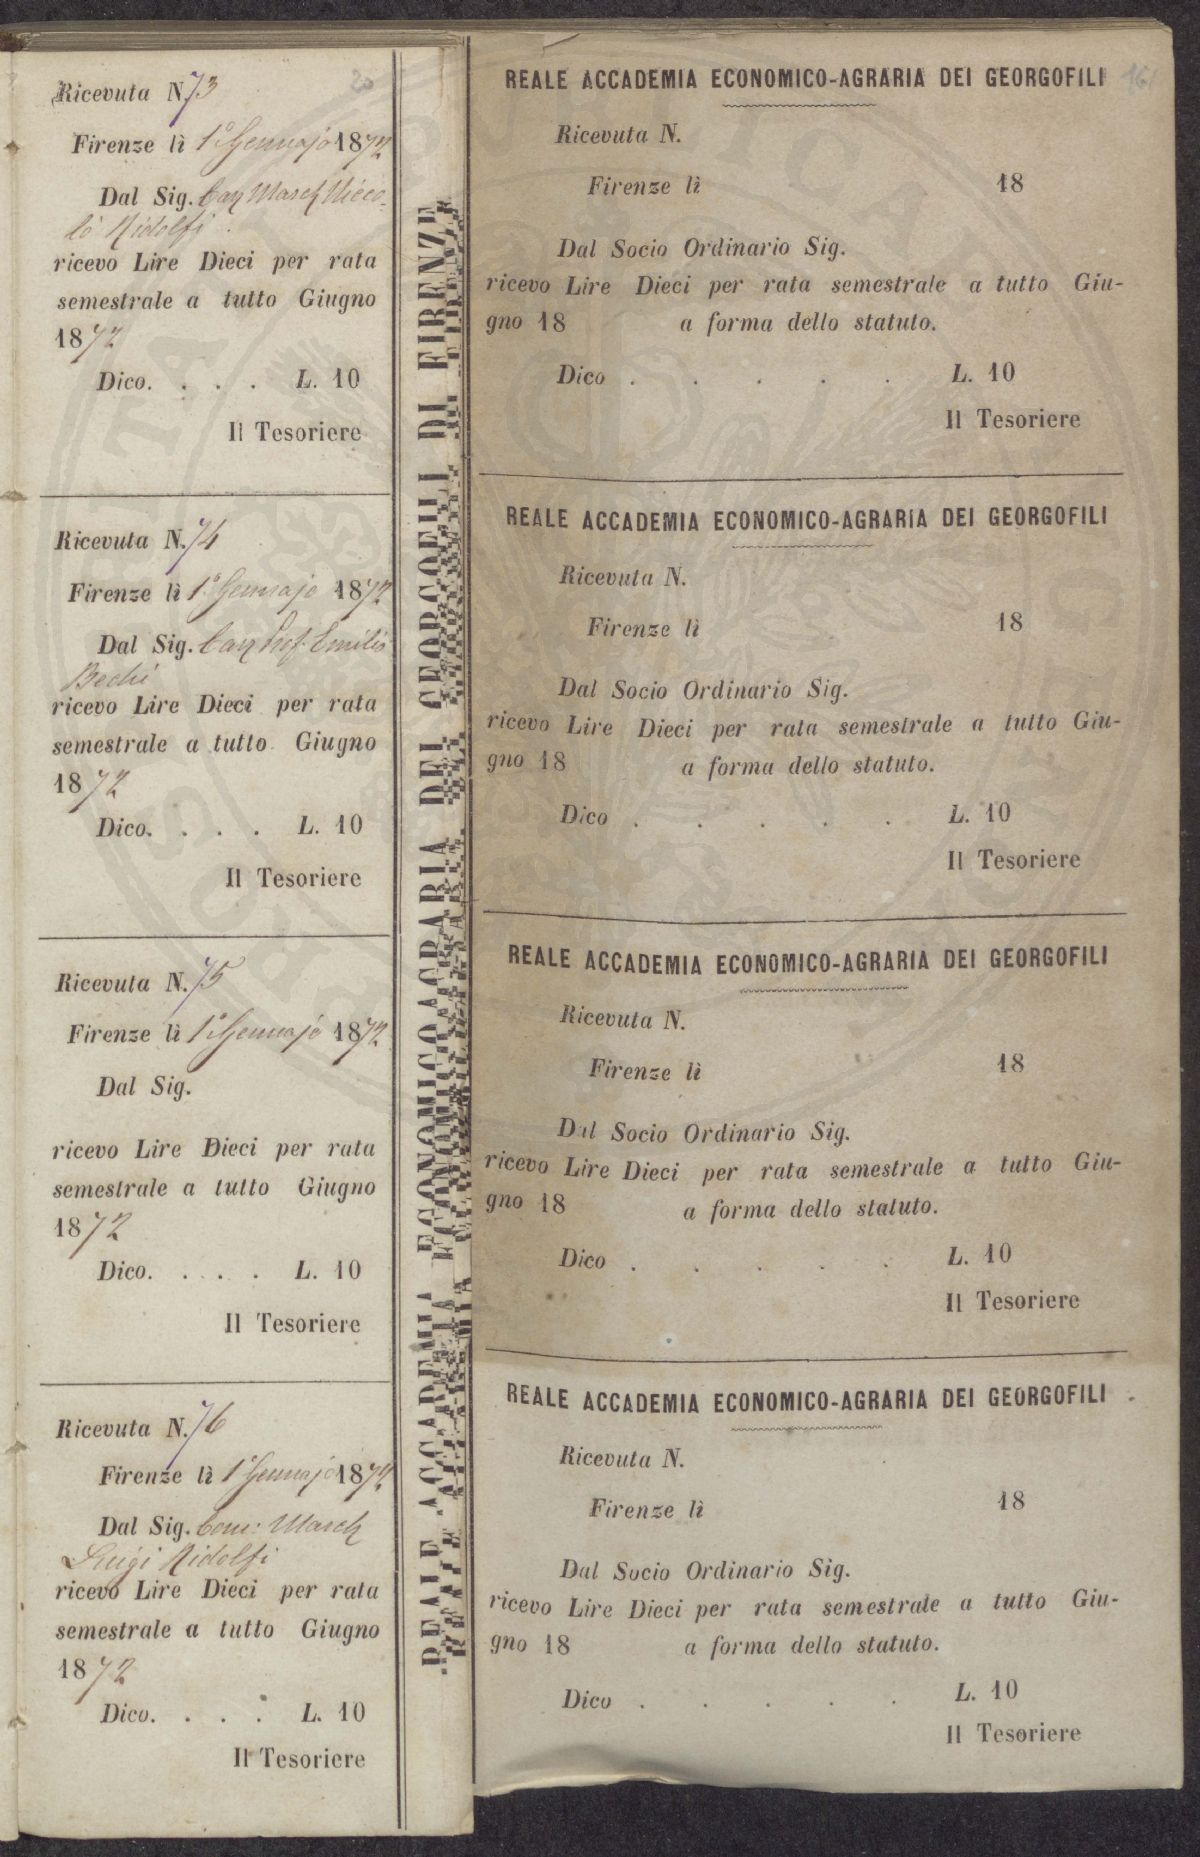 20
Ricevuta N. 73
Firenze lì 1° Gennajo 1872
Dal Sig. Cav March Nicco-
lò Ridolfi
ricevo Lire Dieci per rata
semestrale a tutto Giugno
1872
Dico. . . . . L. 10
Il Tesoriere
Ricevuta N. 74
Firenze lì 1° Gennajo 1872
Dal Sig. Cav Prof. Emilio
Bechi
ricevo Lire Dieci per rata
semestrale a tutto Giugno
1872
Dico. . . . . L. 10
Il Tesoriere
Ricevuta N. 75
Firenze lì 1° Gennajo 1872
Dal Sig.
ricevo Lire Dieci per rata
semestrale a tutto Giugno
1872
Dico. . . . . L. 10
Il Tesoriere
Ricevuta N. 76
Firenze lì 1° Gennajo 1872
Dal Sig. Com: March
Luigi Ridolfi
ricevo Lire Dieci per rata
semestrale a tutto Giugno
1872
Dico. . . . . L. 10
Il Tesoriere
REALE ACCADEMIA ECONOMICO-AGRARIA DEI GEORGOFILI DI FIRENZE
REALE ACCADEMIA ECONOMICO-AGRARIA DEI GEORGOFILI
Ricevuta N.
Firenze lì 18
Dal Socio Ordinario Sig.
ricevo Lire Dieci per rata semestrale a tutto Giu-
gno 18 a forma dello statuto.
Dico . . . . . L. 10
Il Tesoriere
REALE ACCADEMIA ECONOMICO-AGRARIA DEI GEORGOFILI
Ricevuta N.
Firenze lì 18
Dal Socio Ordinario Sig.
ricevo Lire Dieci per rata semestrale a tutto Giu-
gno 18 a forma dello statuto.
Dico . . . . . L. 10
Il Tesoriere
REALE ACCADEMIA ECONOMICO-AGRARIA DEI GEORGOFILI
Ricevuta N.
Firenze lì 18
Dal Socio Ordinario Sig.
ricevo Lire Dieci per rata semestrale a tutto Giu-
gno 18 a forma dello statuto.
Dico . . . . . L. 10
Il Tesoriere
REALE ACCADEMIA ECONOMICO-AGRARIA DEI GEORGOFILI
Ricevuta N.
Firenze lì 18
Dal Socio Ordinario Sig.
ricevo Lire Dieci per rata semestrale a tutto Giu-
gno 18 a forma dello statuto.
Dico . . . . . L. 10
Il Tesoriere